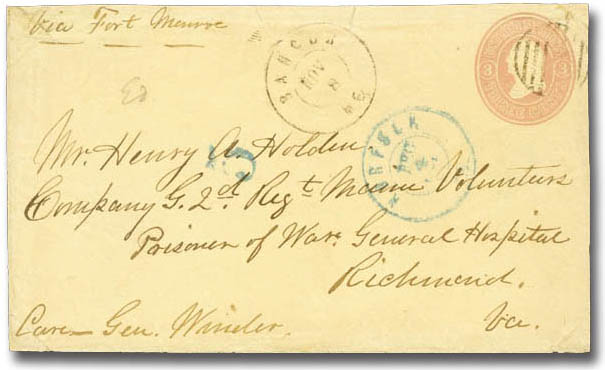 Via Fort Monroe
BANGOR
NOV
8
Ed
3
3
Mr. Henry A. Holden.
5
NORFOLK
Company G. 2d. Regt Maine Volunteers
Prisoner of War. General Hospital
Richmond.
Care Gen. Winder.
Va.